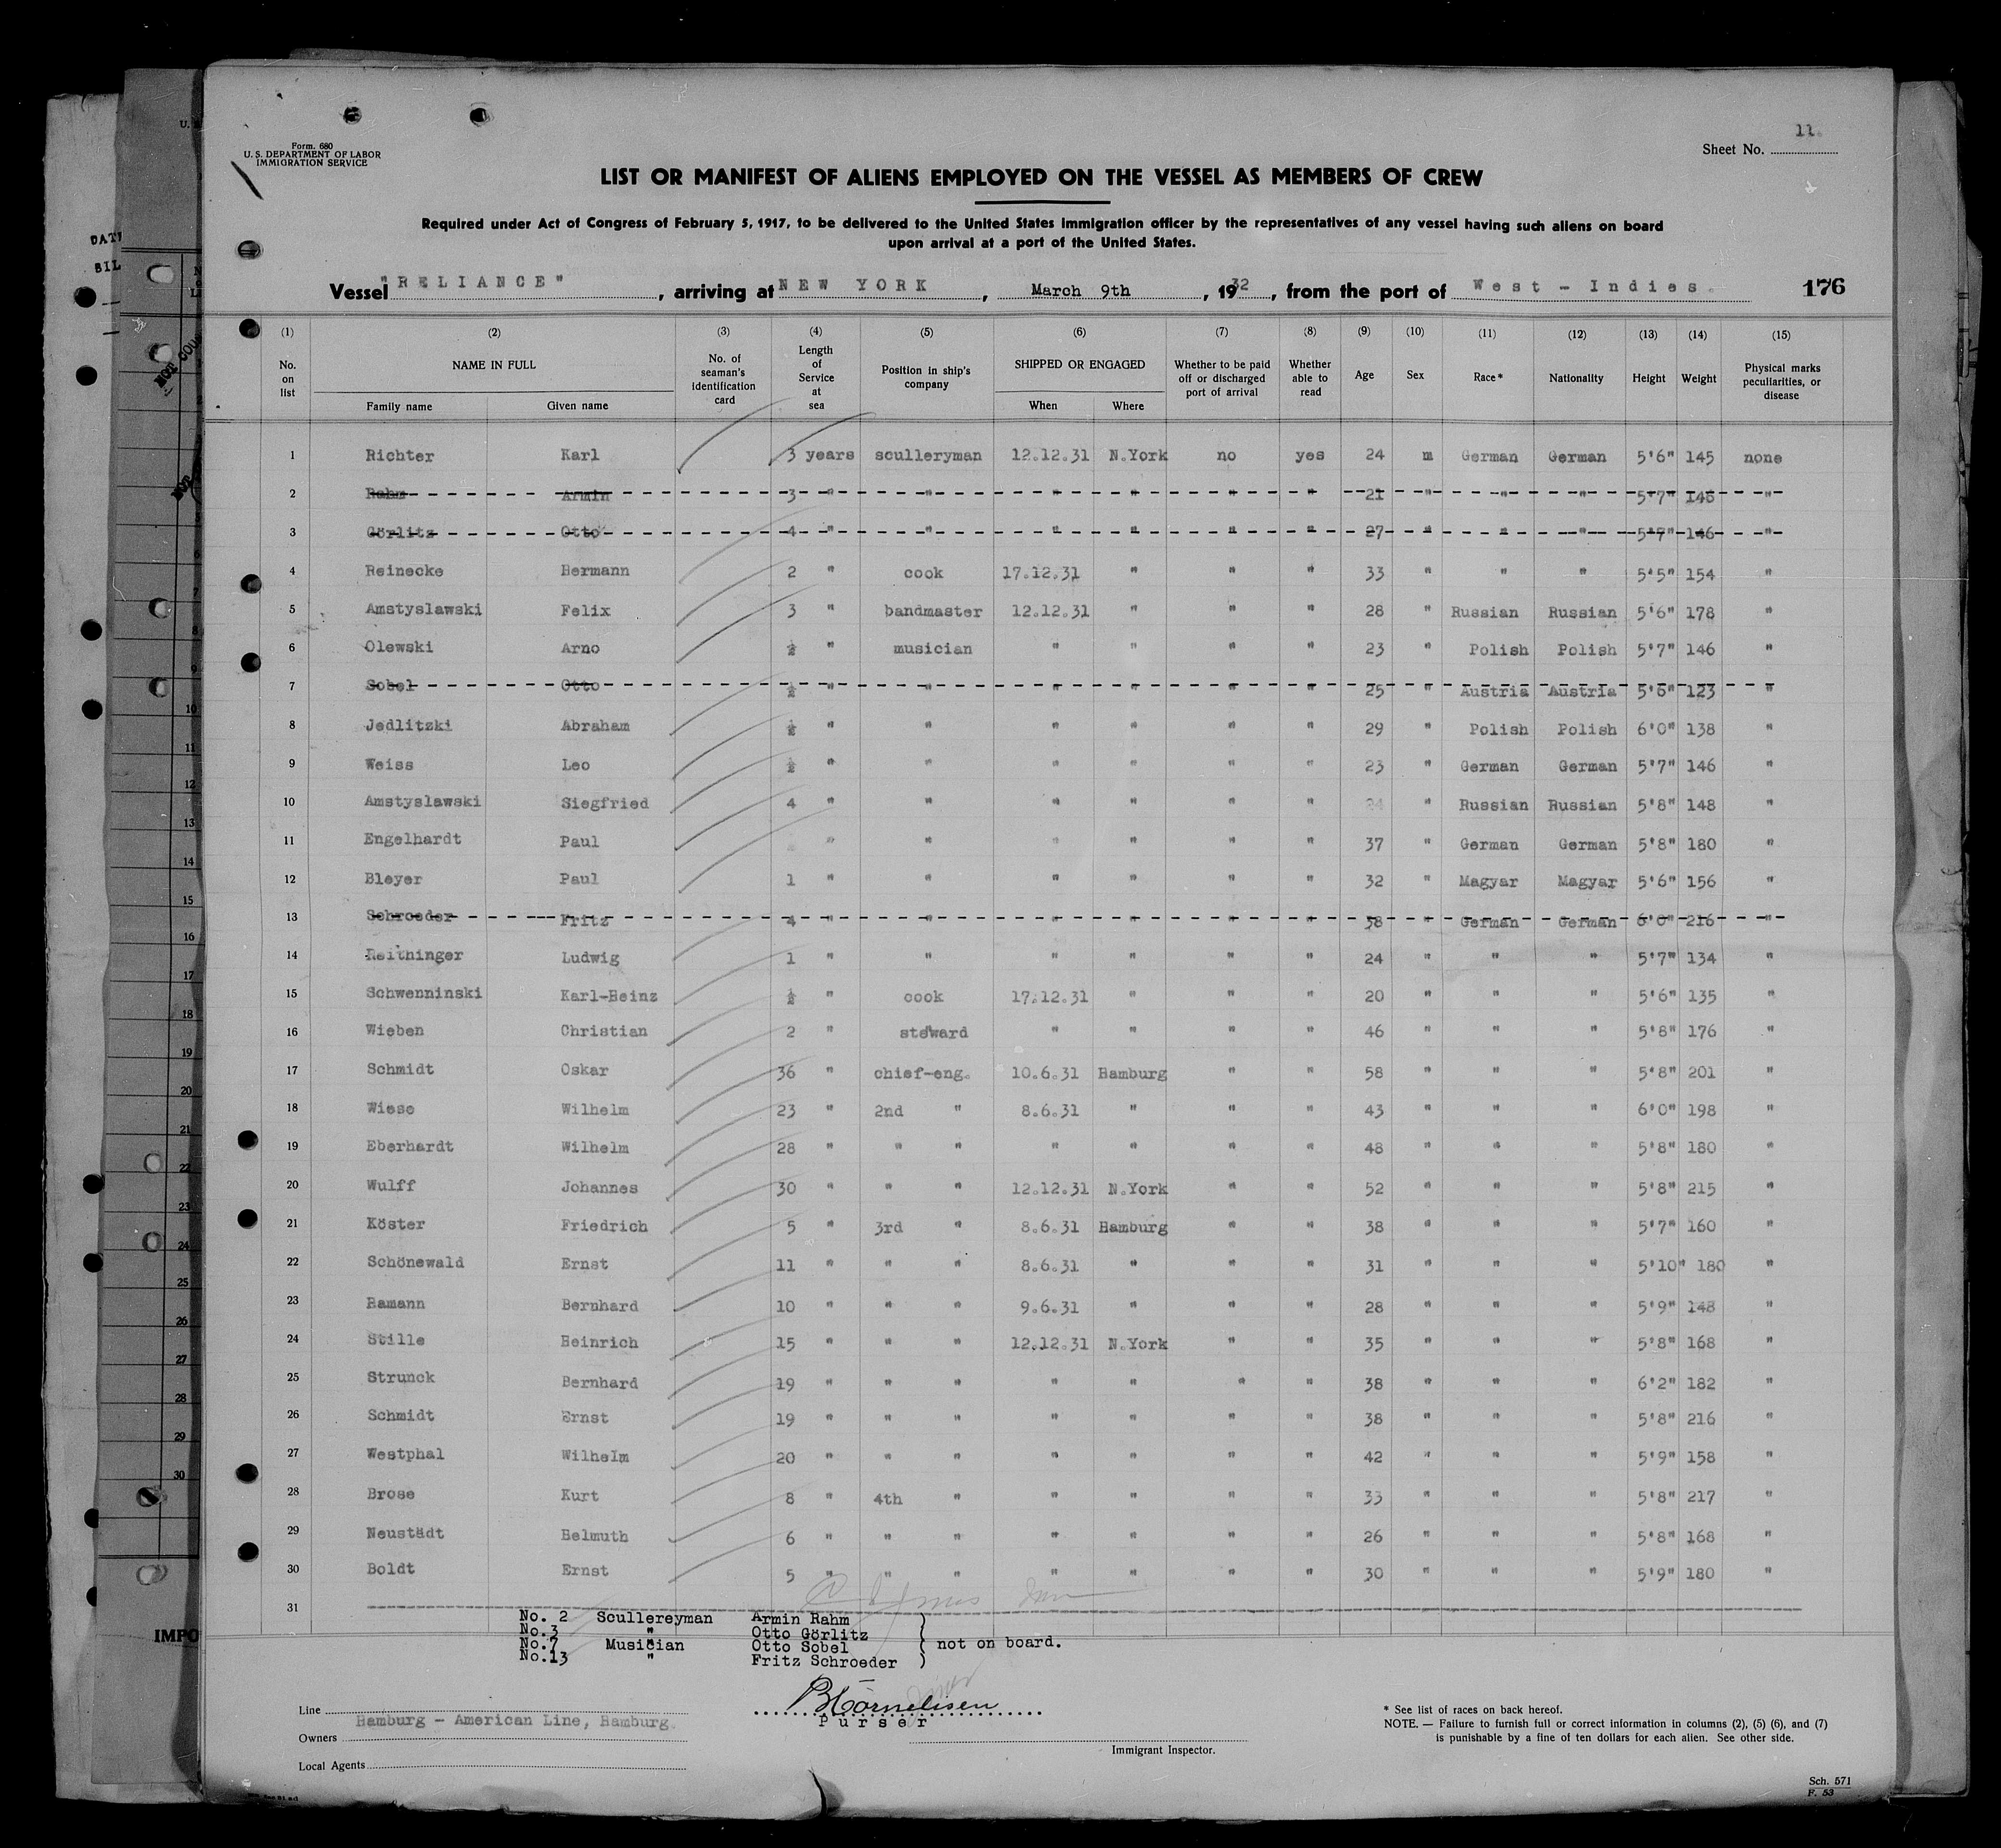 Form. 680
U. S. DEPARTMENT OF LABOR
IMMIGRATION SERVICE
11.
Sheet No.
LIST OR MANIFEST OF ALIENS EMPLOYED ON THE VESSEL AS MEMBERS OF CREW
Required under Act of Congress of February 5, 1917, to be delivered to the United States immigration officer by the representatives of any vessel having such aliens on board
upon arrival at a port of the United States.
Vessel "RELIANCE", arriving at NEW YORK, March 9th, 1932, from the port of West - Indies. 176
(1) (2) (3) (4) (5) (6) (7) (8) (9) (10) (11) (12) (13) (14) (15)
No. on list NAME IN FULL Family name Given name No. of seaman's identification card Length of Service at sea Position in ship's company SHIPPED OR ENGAGED When Where Whether to be paid off or discharged port of arrival Whether able to read Age Sex Race* Nationality Height Weight Physical marks peculiarities, or disease
1 Richter Karl 3 years sculleryman 12.12.31 N.York no yes 24 m German German 5'6" 145 none
2 Rahm Armin 3 " " " " " " 21 " " " 5'7" 146 "
3 Görlitz Otto 4 " " " " " " 27 " " " 5'7" 146 "
4 Reinecke Hermann 2 " cook 17.12.31 " " " 33 " " " 5'5" 154 "
5 Amstyslawski Felix 3 " bandmaster 12.12.31 " " " 28 " Russian Russian 5'6" 178 "
6 Olewski Arno ½ " musician " " " " 23 " Polish Polish 5'7" 146 "
7 Sobel Otto ½ " " " " " " 25 " Austria Austria 5'6" 123 "
8 Jedlitzki Abraham ½ " " " " " " 29 " Polish Polish 6'0" 138 "
9 Weiss Leo ½ " " " " " " 23 " German German 5'7" 146 "
10 Amstyslawski Siegfried 4 " " " " " " 24 " Russian Russian 5'8" 148 "
11 Engelhardt Paul " " " " " " 37 " German German 5'8" 180 "
12 Bleyer Paul 1 " " " " " " 32 " Magyar Magyar 5'6" 156 "
13 Schroeder Fritz 4 " " " " " " 38 " German German 6'0" 216 "
14 Reithinger Ludwig 1 " " " " " " 24 " " " 5'7" 134 "
15 Schwenninski Karl-Heinz ½ " cook 17.12.31 " " " 20 " " " 5'6" 135 "
16 Wieben Christian 2 " steward " " " " 46 " " " 5'8" 176 "
17 Schmidt Oskar 36 " chief-eng. 10.6.31 Hamburg " " 58 " " " 5'8" 201 "
18 Wiese Wilhelm 23 " 2nd " 8.6.31 " " " 43 " " " 6'0" 198 "
19 Eberhardt Wilhelm 28 " " " " " " " 48 " " " 5'8" 180 "
20 Wulff Johannes 30 " " " 12.12.31 N.York " " 52 " " " 5'8" 215 "
21 Köster Friedrich 5 " 3rd " 8.6.31 Hamburg " " 38 " " " 5'7" 160 "
22 Schönewald Ernst 11 " " " 8.6.31 " " " 31 " " " 5'10" 180 "
23 Hamann Bernhard 10 " " " 9.6.31 " " " 28 " " " 5'9" 148 "
24 Stille Heinrich 15 " " " 12.12.31 N.York " " 35 " " " 5'8" 168 "
25 Strunck Bernhard 19 " " " " " " " 38 " " " 6'2" 182 "
26 Schmidt Ernst 19 " " " " " " " 38 " " " 5'8" 216 "
27 Westphal Wilhelm 20 " " " " " " " 42 " " " 5'9" 158 "
28 Brose Kurt 8 " 4th " " " " " 33 " " " 5'8" 217 "
29 Neustädt Helmuth 6 " " " " " " " 26 " " " 5'8" 168 "
30 Boldt Ernst 5 " " " " " " " 30 " " " 5'9" 180 "
31
No. 2 Scullereyman Armin Rahm
No.3 " Otto Görlitz
No.7 Musician Otto Sobel } not on board.
No.13 " Fritz Schroeder
BCornelisen
Purser
Line
Hamburg - American Line, Hamburg.
Owners
Local Agents
Immigrant Inspector.
* See list of races on back hereof.
NOTE. — Failure to furnish full or correct information in columns (2), (5) (6), and (7)
is punishable by a fine of ten dollars for each alien. See other side.
Sch. 571
F. 53